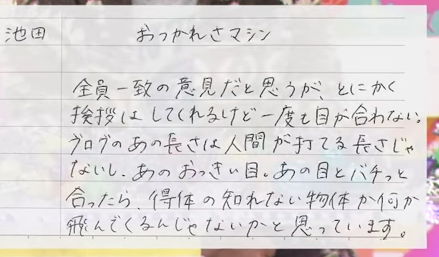 池田 おつかれさマシン
全員一致の意見だと思うが、とにかく
挨拶はしてくれるけど一度も目が合わない。
ブログのあの長さは人間が打てる長さじゃ
ないし、あのおっきい目。あの目とバチっと
合ったら、得体の知れない物体か何か
飛んでくるんじゃないかと思っています。